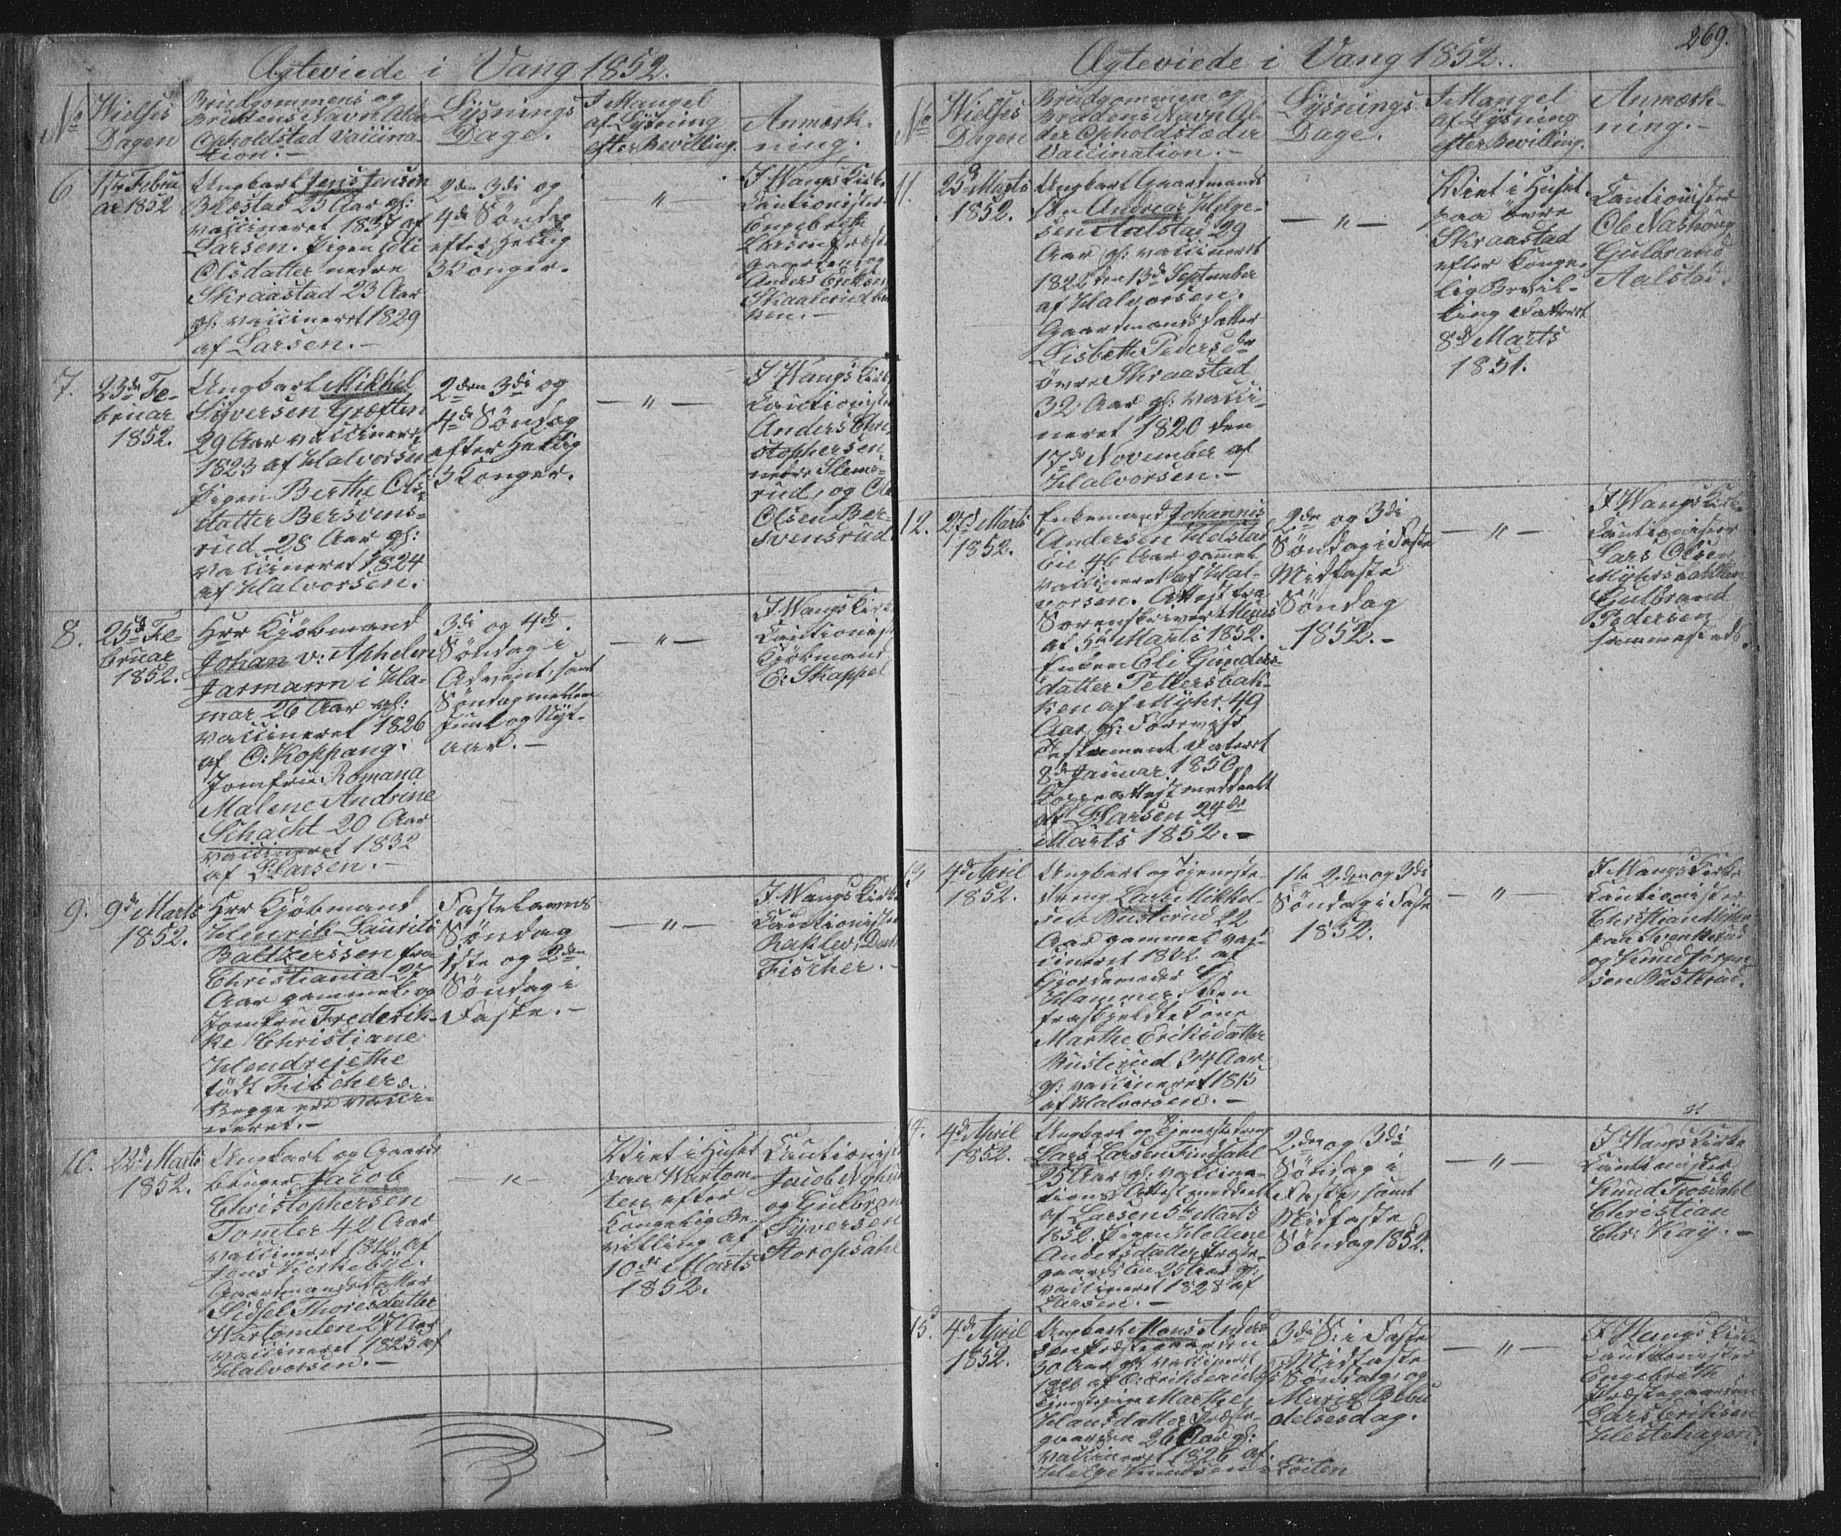 Ægteviede i Vang 1852.
No
Vielses
Dagen
Brudgommens og
Brudens Navn Alder
Opholdsted Vaccina-
tion. —
Lysnings
Dage.
I Mangel
af Lysning
efter Bevilling.
Anmærk-
ning.
6
17de Febru
ar 1852
Ungkarl Jens Jensen
Blæstad 25 Aar gl:
vaccineret 1837 af
Larsen. Pigen Eli
Olsdatter nedre
Skraastad 23 Aar
gl: vaccineret 1829
af Larsen. —
2den 3di og
4de Söndag
efter Hellig
3 Konger.
— " —
I Vangs Kirke
Cautionister
Engebreth
Larsen Præste
gaarden og
Anders Eriksen
7.
25de Fe-
bruar
1852.
Ungkarl Mikkel
Syversen Græften
29 Aar vaccineret
1823 af Halvorsen
Pigen Berthe Ols
datter Bersvens-
rud 28 Aar gl:
vaccineret 1824
af Halvorsen.
2den 3di og
4de Söndag
efter Hellig
3 Konger.
— " —
I Vangs Kirke
Cautionister
Anders Chri
stophersen
nedre Slems-
rud, og Ole
Olsen Ber-
svensrud
8.
25de Fe
bruar
1852.
Hrr Kjöbmand
Johan v: Aphelen
Jarmann i Ha-
mar 26 Aar gl:
vaccineret 1826
af O: Koppang.
Jomfru Romana
Malene Andrine
Schacht 20 Aar
vaccineret 1832
af Larsen. —
3di og 4de
Söndag i
Advent, samt
Söndag mellem
Juul og Nyt-
aar. —
— " —
I Vangs Kirke
Cautionist
Kjöbmand
E: Skappel
9.
9de Marts
1852.
Hrr Kjöbmand
Henrik Lauritz
Baltzerssen fra
Christiania 27
Aar gammel, og
Jomfru Frederik-
ke Christiane
Hendrejethe
födt Fischer.
Begge ere vacci-
neret. —
Fastelavns
Söndag
1ste og 2den
Söndag i
Faste. —
— " —
I Vangs Kirke
Cautionister
Fischer. —
10.
22de Marts
1852.
Ungkarl og Gaard
bruger Jacob
Christophersen
Tomter 42 Aar
vaccineret 1812 af
Jens Kirkebye.
Gaardmandsdatter
Sidsel Thoresdatter
Vartomten 27 Aar
vaccineret 1825 af
Halvorsen. —
— " —
Viet i Huset
paa Vartom-
ten efter
Kongelig Be-
villing af
10de Marts
1852.
Cautionister
Jacob Nyhuus
og Gulbrand
Syversen
Storopsdahl
269.
Ægteviede i Vang 1852.
No
Vielses
Dagen
Brudgommens og
Brudens Navn Al-
der Opholdstæder
Vaccination. —
Lysnings
Dage.
I Mangel
af Lysning
efter Bevilling.
Anmærk-
ning. —
11.
25de Marts
1852.
Ungkarl Gaardmands
sön Andreas Helge-
sen Aalstad 29
Aar gl: vaccineret
1822 den 13de September
af Halvorsen.
Gaardmandsdatter
Lisbeth Pedersdtr
övre Skraastad
32 Aar gl: vacci-
neret 1820 den
17de November af
Halvorsen. —
— " —
Viet i Huset
paa övre
Skraastad
efter Konge-
lig Bevil-
ling dateret
8de Marts
1851.
Cautionister
Ole Nashoug
Gulbrand
Aalstad.
12.
27de Marts
1852.
Enkemand Johannis
Andersen Helstad
Eie 46 Aar gammel
vaccineret af Hal-
vorsen. Attest fra
Sorenskriver Meins
af 5te Marts 1852.
Enken Eli Gunders-
datter Pettersbak-
ken af Myhr 49
Aar gl: Forevist
Testament dateret
8de Januar 1850.
Koppeattest meddeelt
af Larsen 24de
Marts 1852. —
2den og 3di
Söndag i Faste
Midfaste
Söndag
1852. —
— " —
I Vangs Kirke
Cautionister
Lars Olsen
Myhrsbakken
Gulbrand
Pedersen
sammesteds.
13
4de April
1852.
Ungkarl og Tjeneste-
dreng Lars Mikkel-
sen Busterud 22
Aar gammel vac-
cineret 1832 af
Gjordemoder
Hammer. Den
fraskjeldte Kone
Marthe Eriksdatter
Busterud 37 Aar
gl: vaccineret 1815
af Halvorsen. —
1ste 2den og 3di
Söndag i Faste
1852.
— " —
I Vangs Kirke
Cautionister
Christian
fra Svenkerud
og Knud Jören
sen Busterud.
14.
4de April
1852.
Ungkarl og Tjenestedreng
Lars Larsen Finsdahl
25 Aar gl: Vaccina-
tions Attest meddelt
af Larsen 5te Marts
1852. Pigen Hellene
Andersdatter Præste-
gaards Eie 25 Aar gl:
vaccineret 1828 af
Larsen. —
2den og 3di
Söndag i
Faste, samt
Midfaste
Söndag 1852.
— " —
I Vangs Kirke
Cautionister
Knud Frosdahl
Christian
Chr: Kay. —
15.
4de April
1852.
Ungkarl Mons Anders
sen Præstegaarden
30 Aar gl: vaccineret
Marthe
Hansdatter Præste-
gaarden 26 Aar gl:
vaccineret 1826 af
Helge Knudsen i Löiten
3di S: i Faste
Midfaste
Söndag, og
Mariæ Bebu
delsesdag.
— " —
I Vangs Kirke
Cautionister
Engebreth
Præstegaarden
Lars Eriksen
Hestehagen.